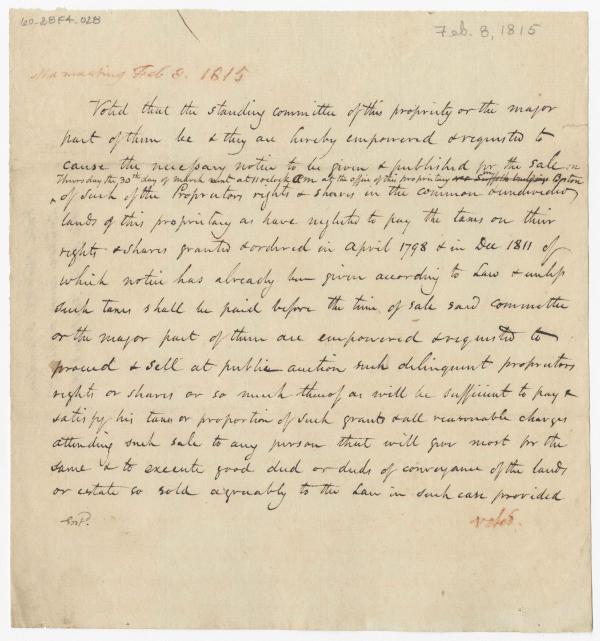 60-28F4.028
Feb. 8, 1815
Feb 8. 1815
Voted that the standing committee of this propriety or the major
part of them be & they are hereby empowered & requested to
cause the necessary notice to be given & published for the sale in
Thursday the 30th day of March at 11 oClock AM at the office of this propriety Boston
of such of the Proprietors rights & shares in the common & undivided
lands of this propriety as have neglected to pay the taxes on their
rights & shares granted & ordered in April 1798 & in Dec 1811 of
which notice has already been given according to Law & unless
such taxes shall be paid before the time of sale said committee
or the major part of them are empowered & requested to
proceed & sell at public auction such delinquent proprietors
rights or shares or so much thereof as will be sufficient to pay &
satisfy his taxes or proportion of such grants & all reasonable charges
attending such sale to any person that will give most for the
same & to execute good deed or deeds of conveyance of the lands
or estate so sold agreeably to the Law in such case provided
voted.